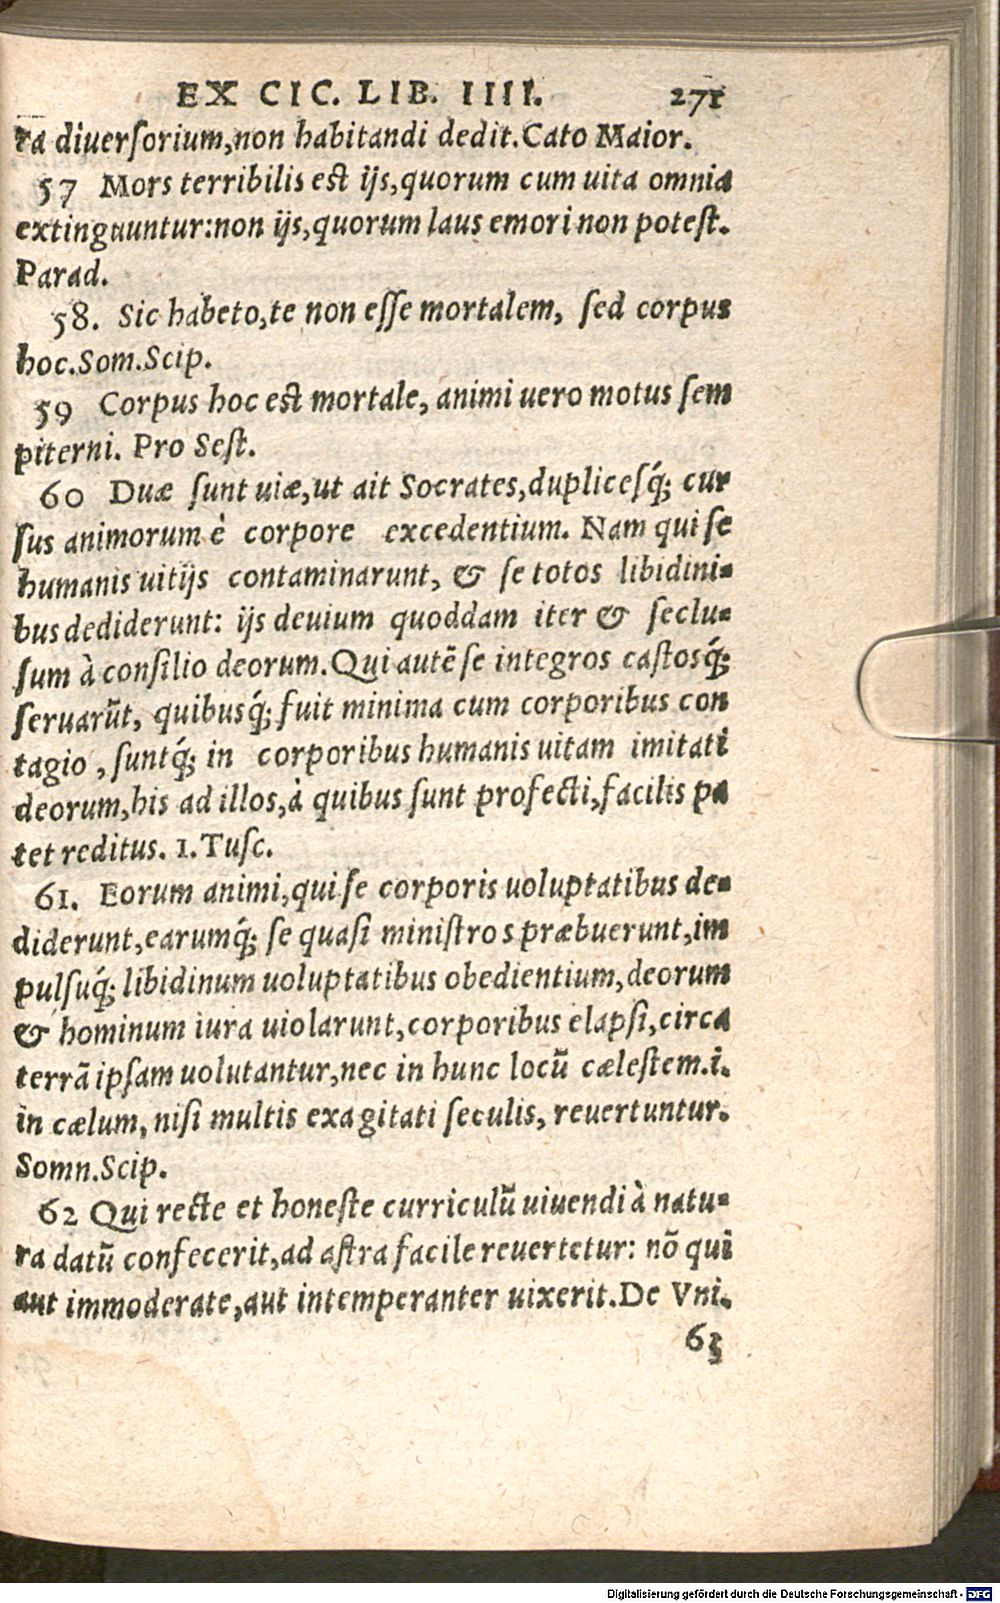 EX CIC. LIB. IIII. 271
ra diuerſorium,non habitandi dedit.Cato Maior.
57 Mors terribilis est ijs,quorum cum uita omnia
extinguuntur:non ijs,quorum laus emori non poteſt.
Parad.
58. Sic habeto,te non eſſe mortalem, ſed corpus
hoc.Som.Scip.
59 Corpus hoc est mortale, animi uero motus ſem
piterni. Pro Seſt.
60 Duæ ſunt uiæ,ut ait Socrates,duplicesq́; cur
ſus animorum è corpore excedentium. Nam qui ſe
humanis uitijs contaminarunt, & ſe totos libidini-
bus dediderunt: ijs deuium quoddam iter & ſeclu-
ſum à conſilio deorum.Qui autē ſe integros caſtosq́;
ſeruarūt, quibusq́; fuit minima cum corporibus con
tagio, ſuntq́; in corporibus humanis uitam imitati
deorum,his ad illos,à quibus ſunt profecti,facilis pa
tet reditus. 1.Tuſc.
61. Eorum animi,qui ſe corporis uoluptatibus de-
diderunt,earumq́; ſe quaſi miniſtros præbuerunt,im
pulſuq́; libidinum uoluptatibus obedientium,deorum
& hominum iura uiolarunt,corporibus elapſi,circa
terrā ipſam uolutantur,nec in hunc locū cæleſtem.i.
in cælum, niſi multis exagitati ſeculis, reuertuntur.
Somn.Scip.
62 Qui recte et honeſte curriculū uiuendi à natu-
ra datū confecerit,ad aſtra facile reuertetur: nō qui
aut immoderate,aut intemperanter uixerit.De Vni.
63
Digitalisierung gefördert durch die Deutsche Forschungsgemeinschaft - DFG